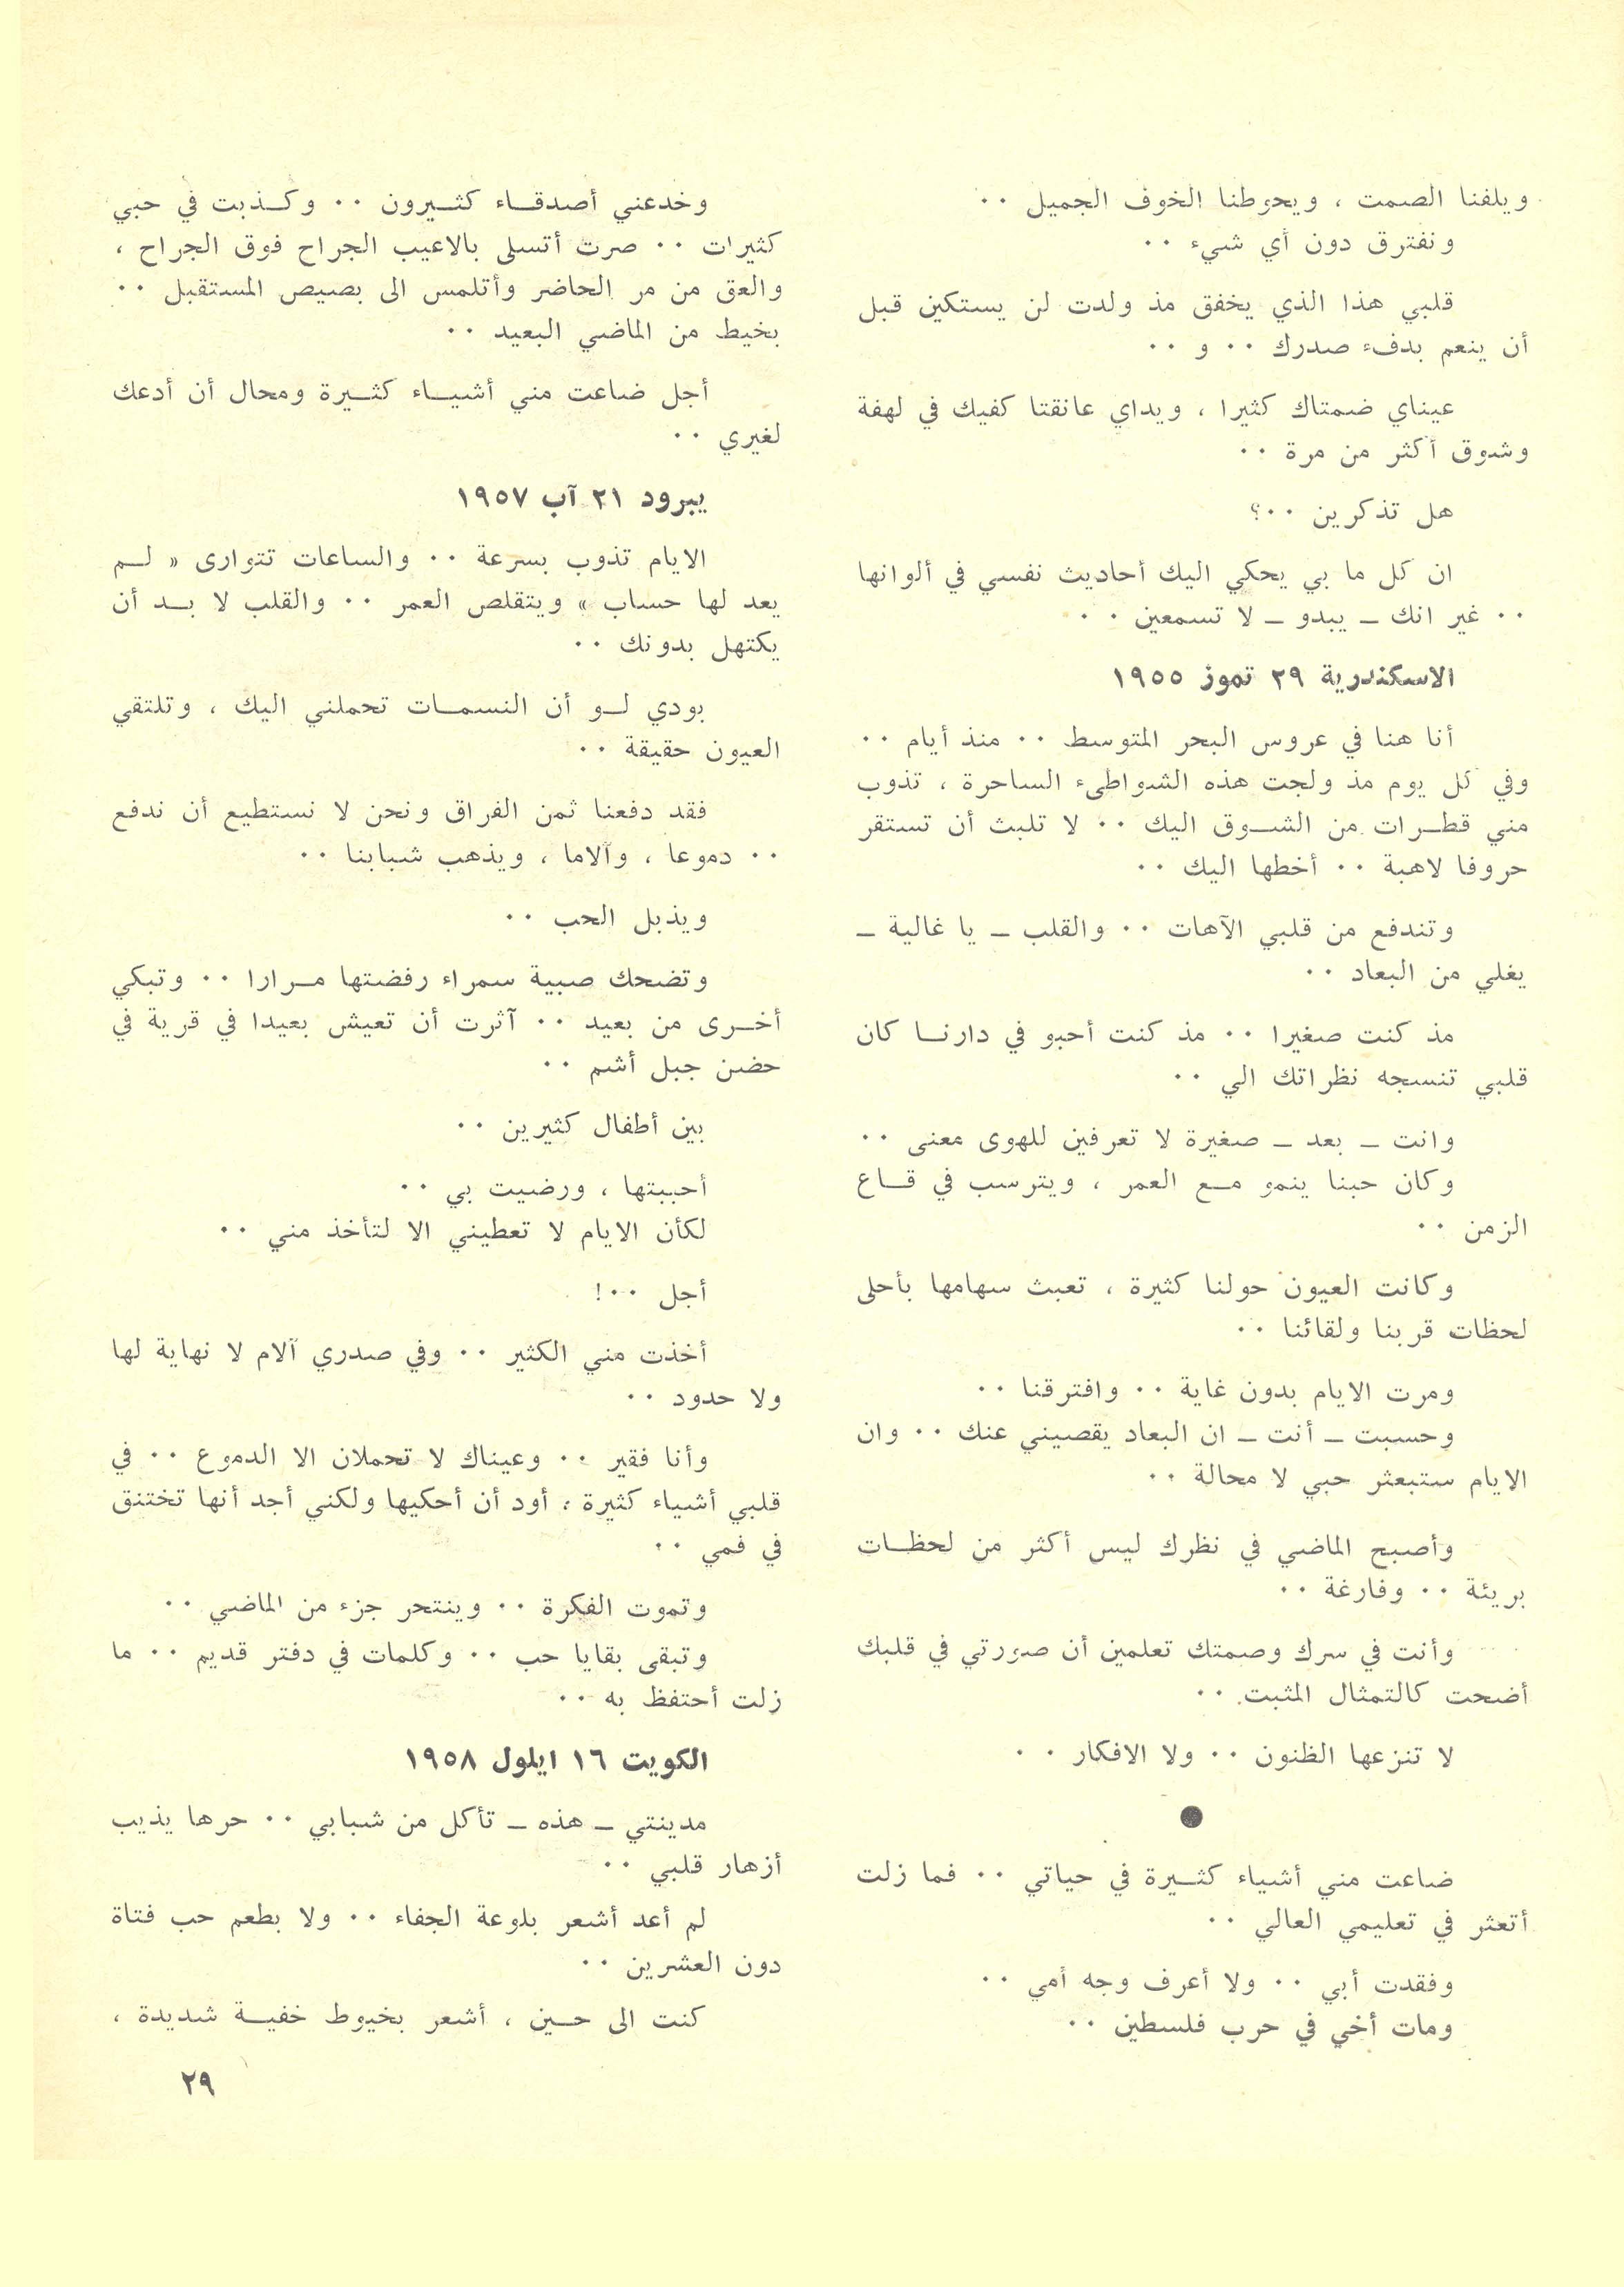 ويلفنا الصمت ، ويحوطنا الخوف الجميل ٠٠
ونفترق دون أي شيء ٠٠
قلبي هذا الذي يخفق مذ ولدت لن يستكين قبل
أن ينعم بدفء صدرك ٠٠ و ٠٠
عيناي ضمتاك كثيرا ، ويداي عانقتا كفيك في لهفة
وشوق أكثر من مرة ٠٠
هل تذكرين ٠٠؟
ان كل ما بي يحكي اليك أحاديث نفسي في ألوانها
٠٠ غير انك ــ يبدو ــ لا تسمعين ٠٠
الاسكندرية ٢٩ تموز ١٩٥٥
أنا هنا في عروس البحر المتوسط ٠٠ منذ أيام ٠٠
وفي كل يوم مذ ولجت هذه الشواطىء الساحرة ، تذوب
مني قطرات من الشوق اليك ٠٠ لا تلبث أن تستقر
حروفا لاهبة ٠٠ أخطها اليك ٠٠
وتندفع من قلبي الآهات ٠٠ والقلب ــ يا غالية ــ
يغلي من البعاد ٠٠
مذ كنت صغيرا ٠٠ مذ كنت أحبو في دارنا كان
قلبي تنسجه نظراتك الي ٠٠
وانت ــ بعد ــ صغيرة لا تعرفين للهوى معنى ٠٠
وكان حبنا ينمو مع العمر ، ويترسب في قاع
الزمن ٠٠
وكانت العيون حولنا كثيرة ، تعبث سهامها بأحلى
لحظات قربنا ولقائنا ٠٠
ومرت الايام بدون غاية ٠٠ وافترقنا ٠٠
وحسبت ــ أنت ــ ان البعاد يقصيني عنك ٠٠ وان
الايام ستبعثر حبي لا محالة ٠٠
وأصبح الماضي في نظرك ليس أكثر من لحظات
بريئة ٠٠ وفارغة ٠٠
وأنت في سرك وصمتك تعلمين أن صورتي في قلبك
أضحت كالتمثال المثبت ٠٠
لا تنزعها الظنون ٠٠ ولا الافكار ٠٠
●
ضاعت مني أشياء كثيرة في حياتي ٠٠ فما زلت
أتعثر في تعليمي العالي ٠٠
وفقدت أبي ٠٠ ولا أعرف وجه أمي ٠٠
ومات أخي في حرب فلسطين ٠٠
وخدعني أصدقاء كثيرون ٠٠ وكذبت في حبي
كثيرات ٠٠ صرت أتسلى بالاعيب الجراح فوق الجراح ،
والعق من مر الحاضر وأتلمس الى بصيص المستقبل ٠٠
بخيط من الماضي البعيد ٠٠
أجل ضاعت مني أشياء كثيرة ومحال أن أدعك
لغيري ٠٠
يبرود ٢١ آب ١٩٥٧
الايام تذوب بسرعة ٠٠ والساعات تتوارى « لم
يعد لها حساب » ويتقلص العمر ٠٠ والقلب لا بد أن
يكتهل بدونك ٠٠
بودي لو أن النسمات تحملني اليك ، وتلتقي
العيون حقيقة ٠٠
فقد دفعنا ثمن الفراق ونحن لا نستطيع أن ندفع
٠٠ دموعا ، وآلاما ، ويذهب شبابنا ٠٠
ويذبل الحب ٠٠
وتضحك صبية سمراء رفضتها مرارا ٠٠ وتبكي
أخرى من بعيد ٠٠ آثرت أن تعيش بعيدا في قرية في
حضن جبل أشم ٠٠
بين أطفال كثيرين ٠٠
أحببتها ، ورضيت بي ٠٠
لكأن الايام لا تعطيني الا لتأخذ مني ٠٠
أجل ٠٠!
أخذت مني الكثير ٠٠ وفي صدري آلام لا نهاية لها
ولا حدود ٠٠
وأنا فقير ٠٠ وعيناك لا تحملان الا الدموع ٠٠ في
قلبي أشياء كثيرة ، أود أن أحكيها ولكني أجد أنها تختنق
في فمي ٠٠
وتموت الفكرة ٠٠ وينتحر جزء من الماضي ٠٠
وتبقى بقايا حب ٠٠ وكلمات في دفتر قديم ٠٠ ما
زلت أحتفظ به ٠٠
الكويت ١٦ ايلول ١٩٥٨
مدينتي ــ هذه ــ تأكل من شبابي ٠٠ حرها يذيب
أزهار قلبي ٠٠
لم أعد أشعر بلوعة الجفاء ٠٠ ولا بطعم حب فتاة
دون العشرين ٠٠
كنت الى حين ، أشعر بخيوط خفية شديدة ،
٢٩